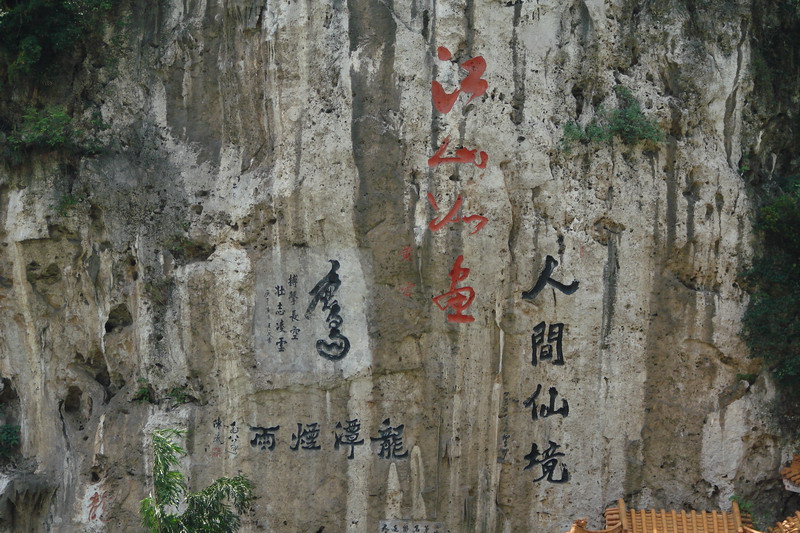 江山如画
人間仙境
鷹
搏擊長空
壯志凌雲
龍潭煙雨